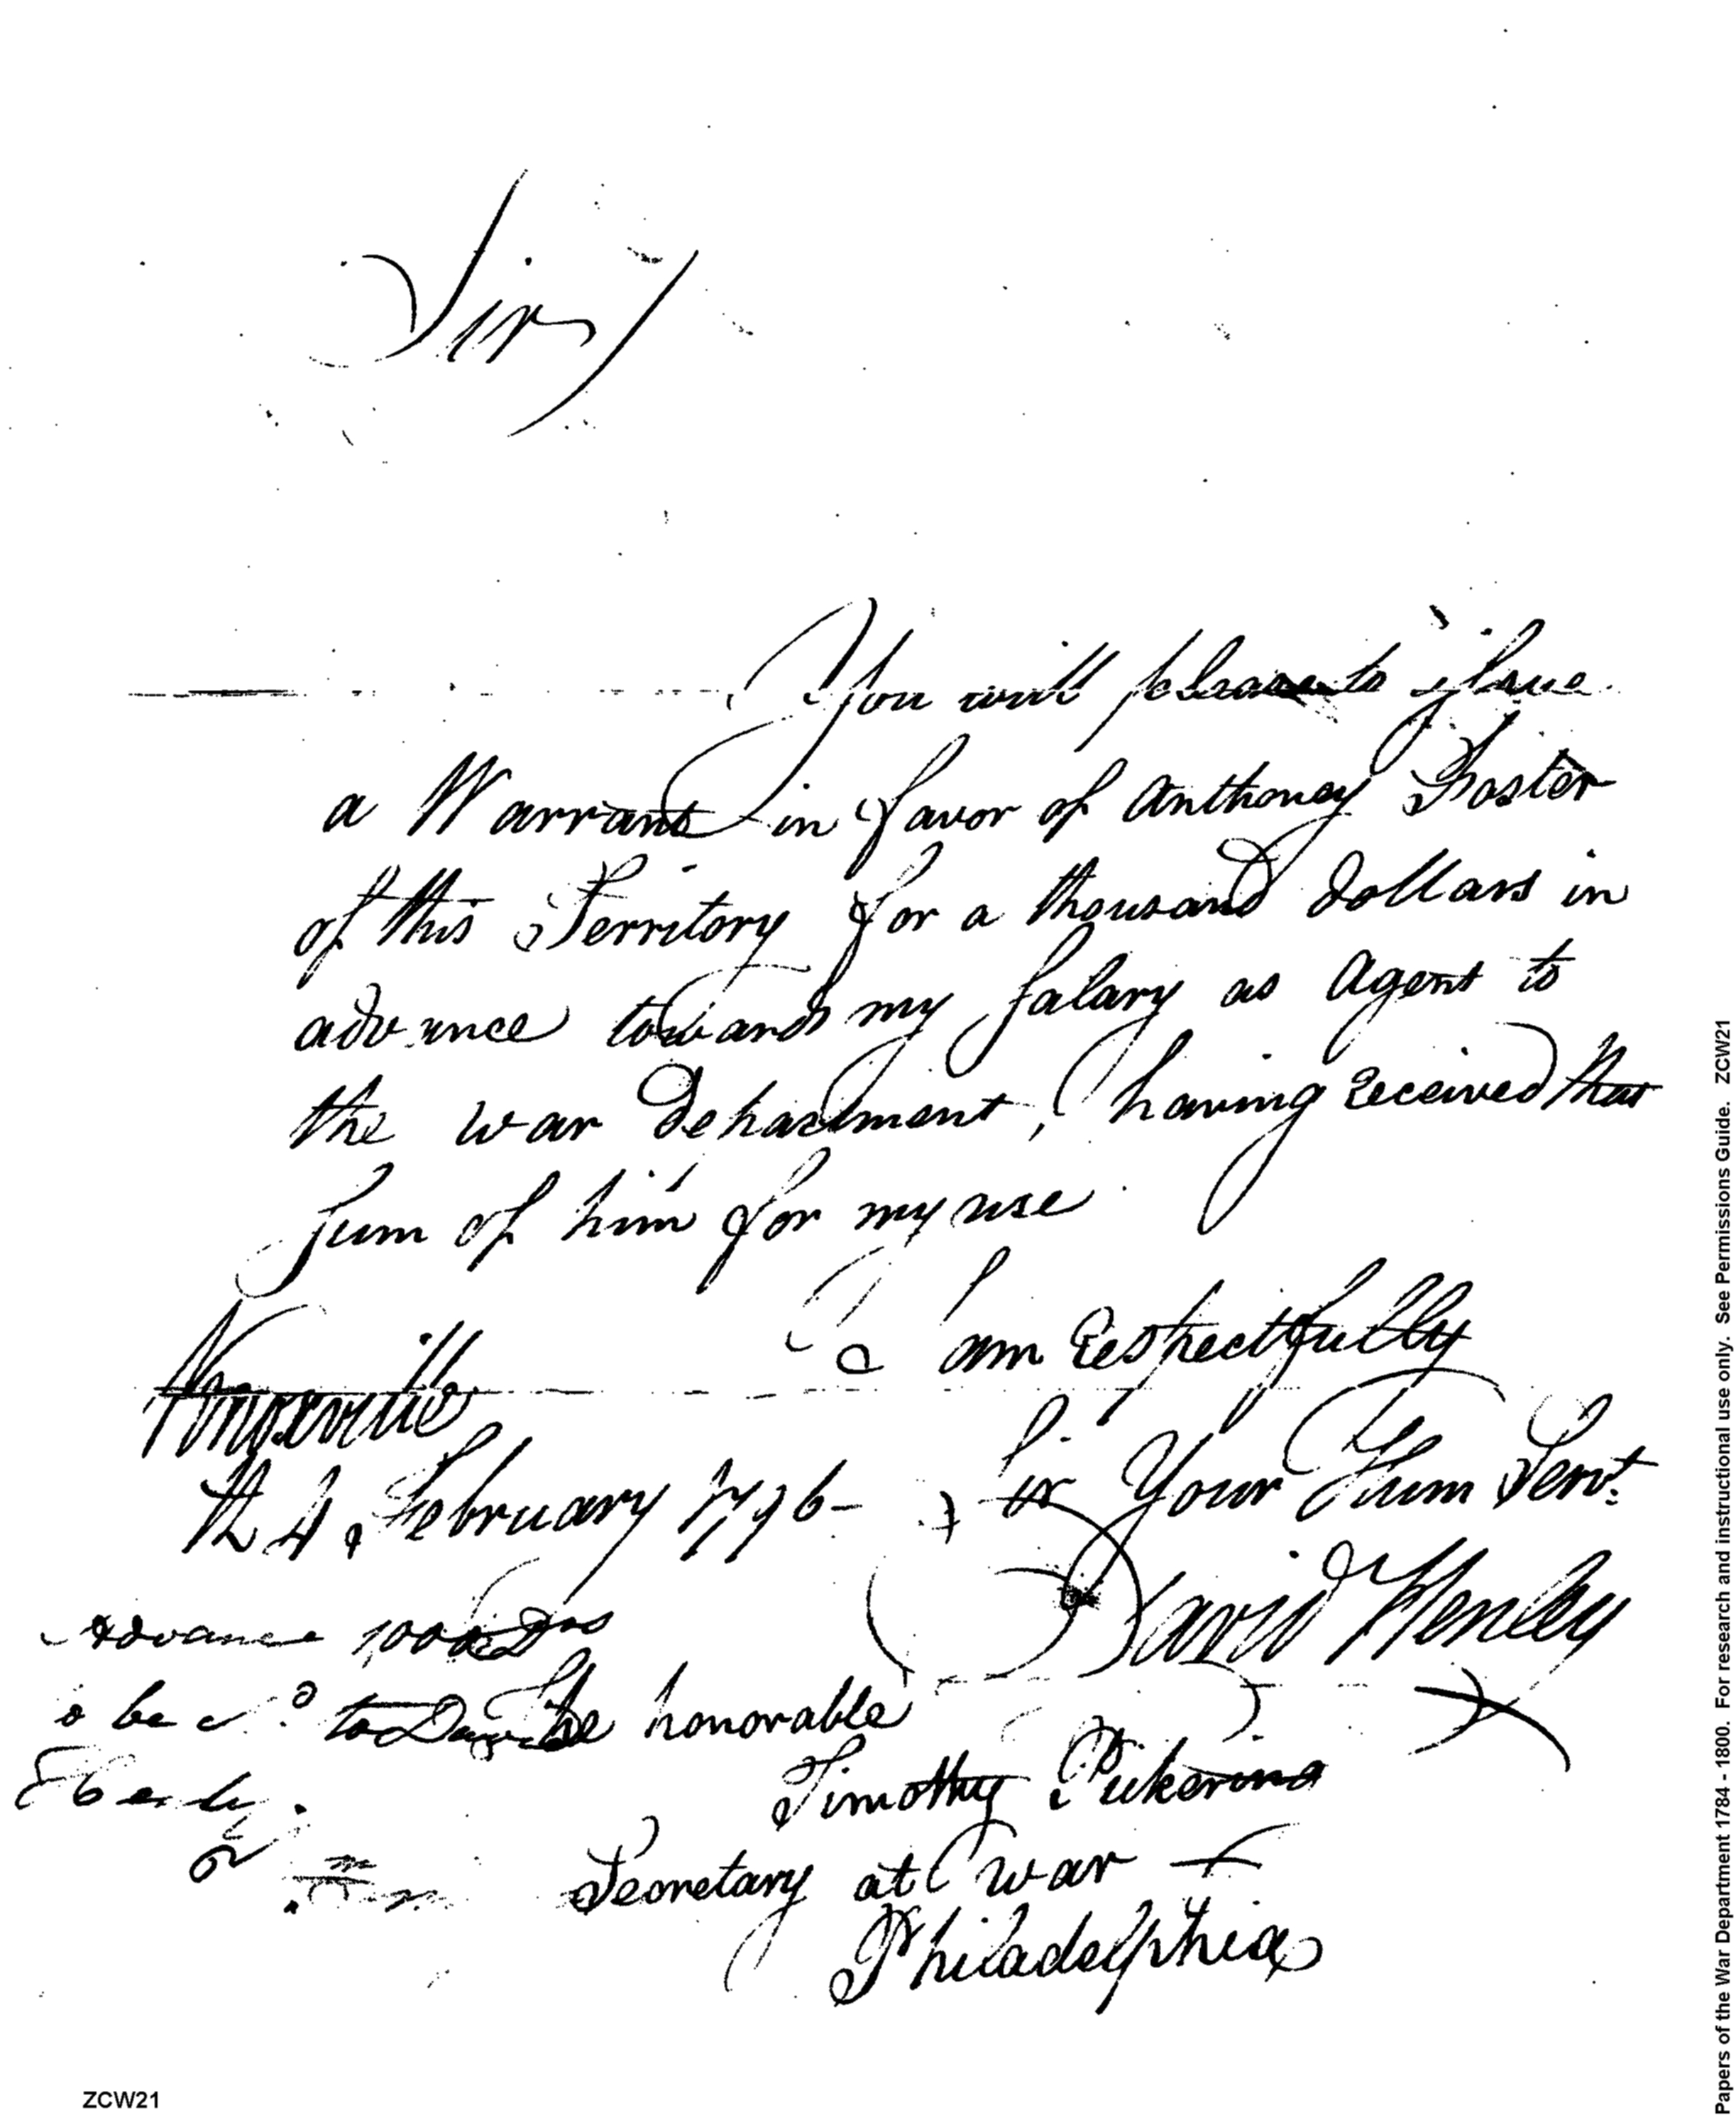 Sir
You will please to issue
a Warrant in favor of Anthoney Foster
of this Territory for a thousand dollars in
advance towards my Salary as Agent to
the war Department, having received that
Sum of him for my use
I am respectfully
Knoxville
th 4 February 1796-
Sir Your Hum Servt.
David Henley
Advance 1000 Dos
be to
The honorable
Timothy Pickering
Secretary at war
Philadelphia
ZCW21
Papers of the War Department 1784 - 1800. For research and instructional use only. See Permissions Guide. ZCW21